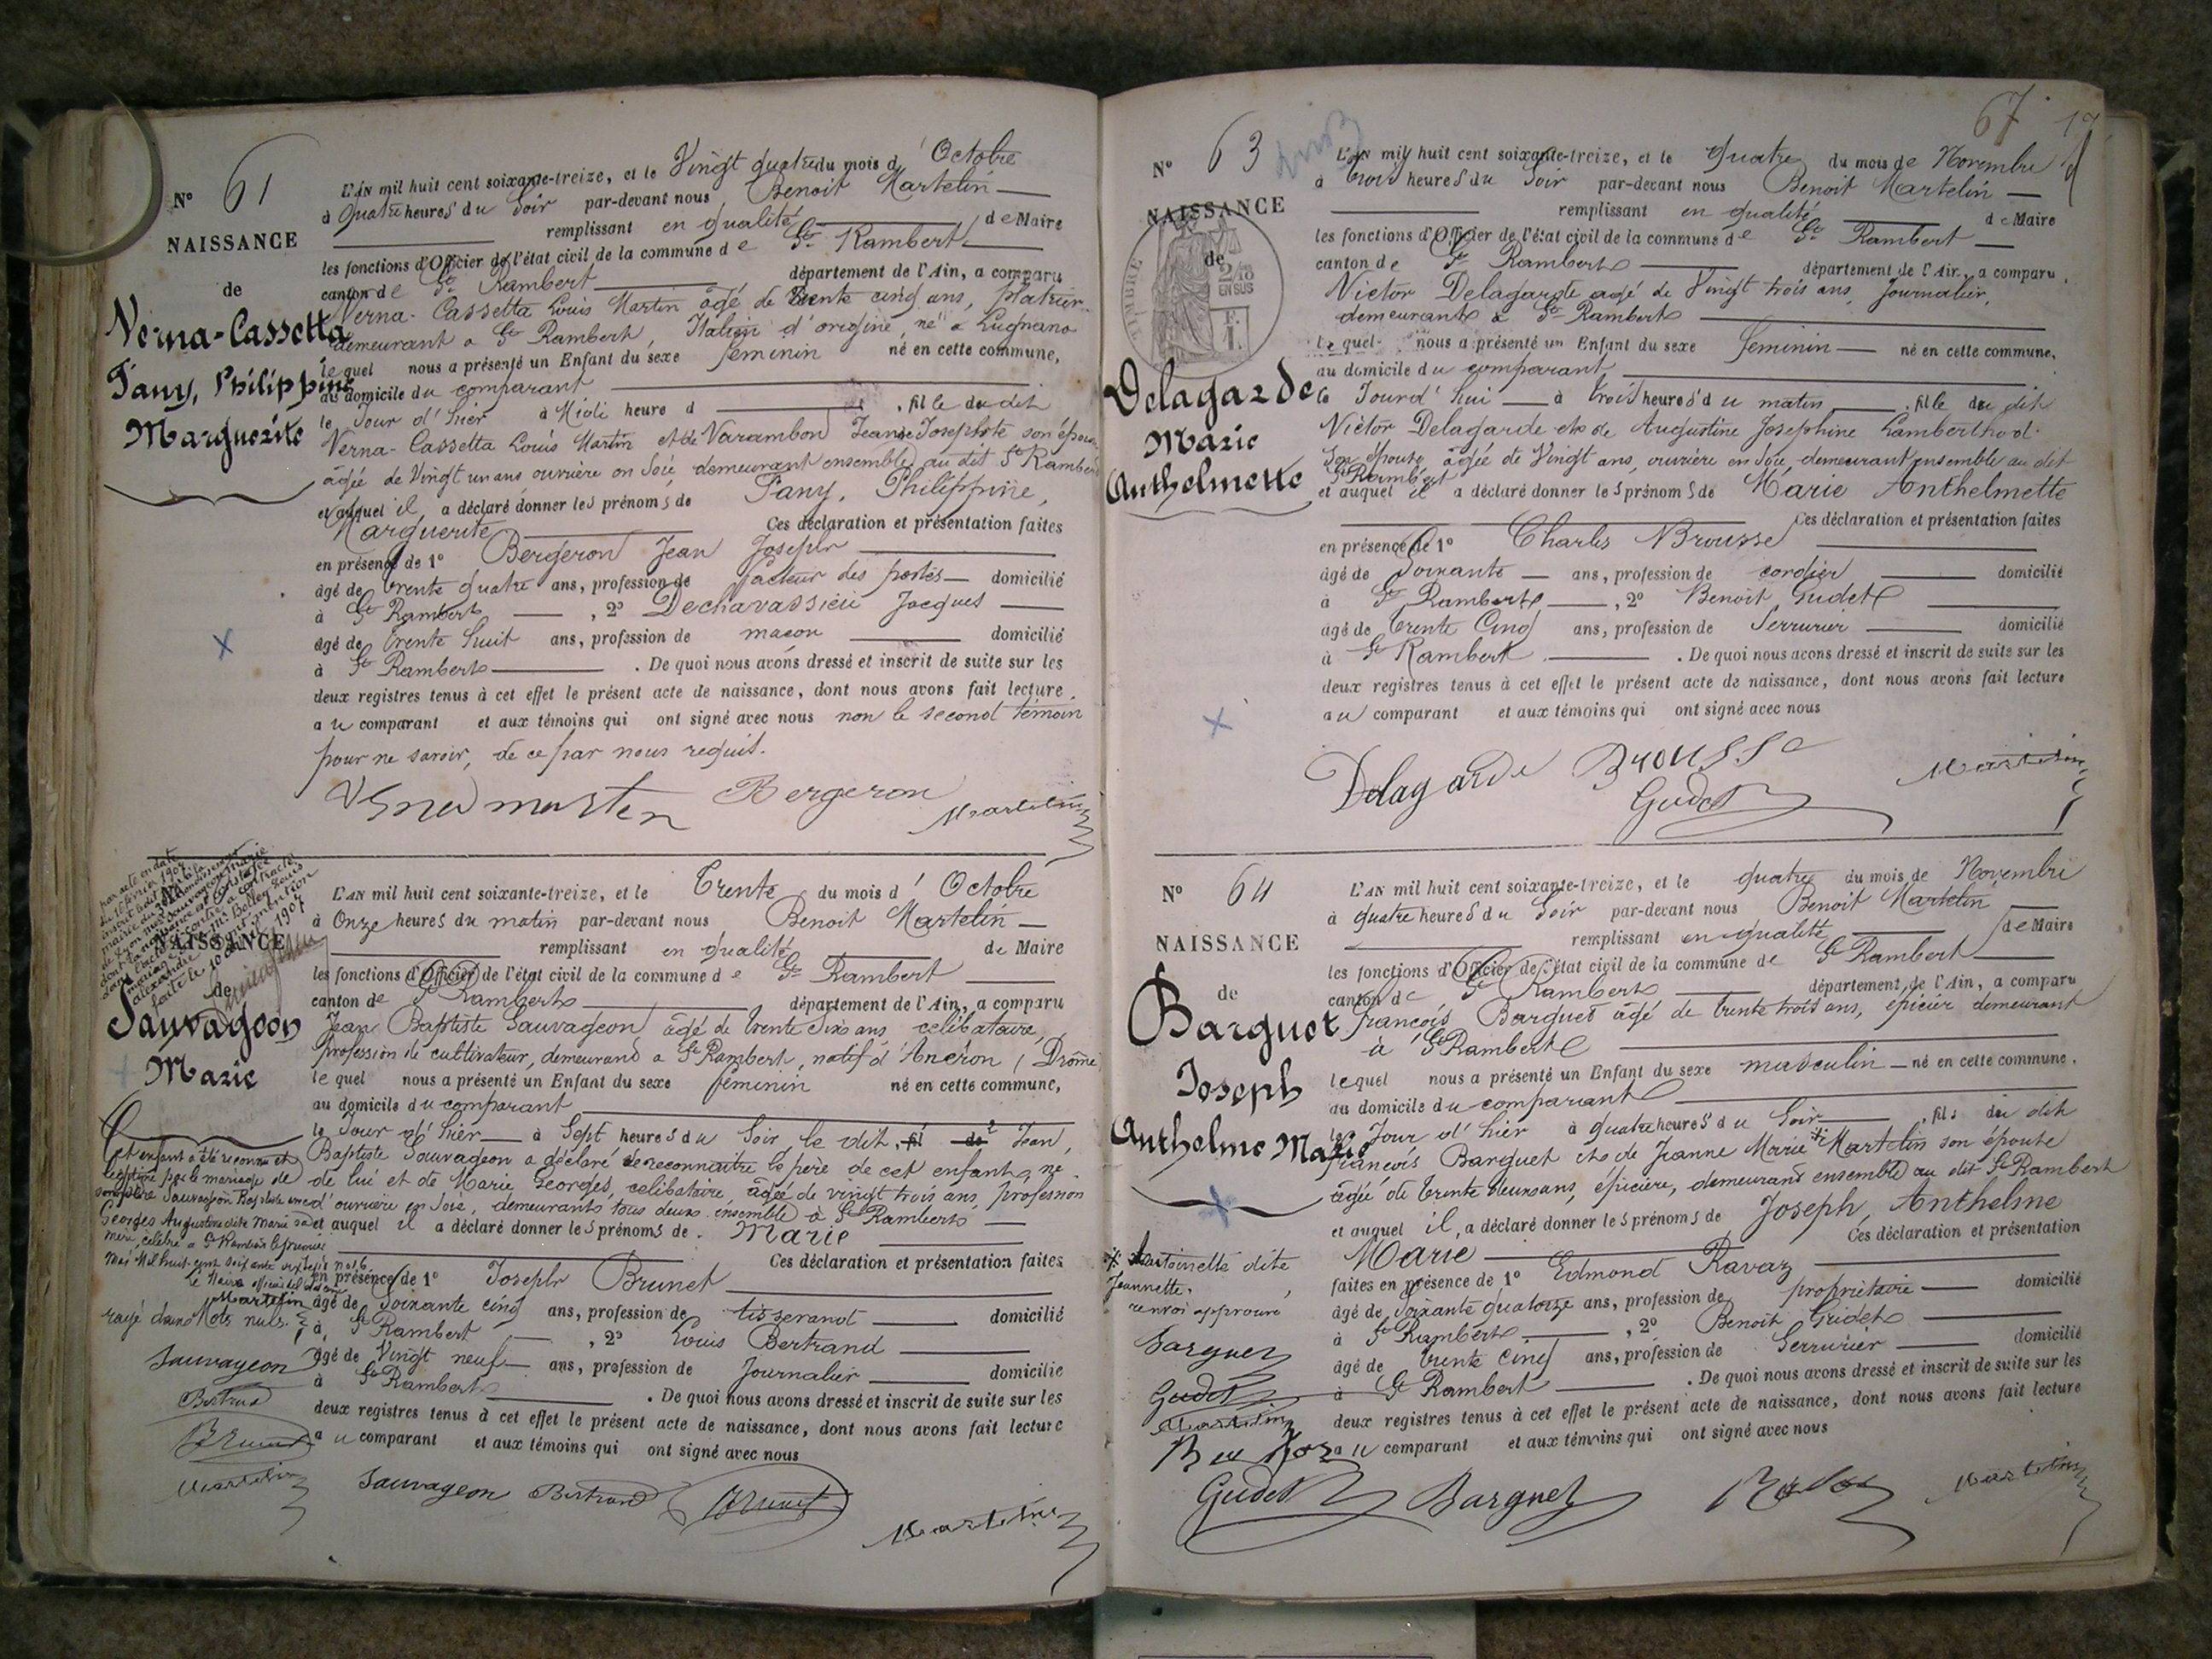 N° 61
NAISSANCE
de
Verna-Cassetta
Fany, Philippine
Marguerite
L'AN mil huit cent soixante-treize, et le Vingt quatre du mois d'Octobre
à quatre heures du Soir par-devant nous Benoit Martelin
remplissant en qualité de Maire
les fonctions d'Officier de l'état civil de la commune de St Rambert
canton de St Rambert département de l'Ain, a comparu
Verna-Cassetta Louis Martin âgé de trente cinq ans, platrier
demeurant a St Rambert, Italien d'origine, né a Lugnano
lequel nous a présenté un Enfant du sexe feminin né en cette commune,
au domicile du comparant
le Jour d'hier à Midi heure d , fille du dit
Verna-Cassetta Louis Martin et de Varambon Jeanne Josephte son épouse
âgée de Vingt un ans ouvrière en Soie demeurant ensemble au dit St Rambert
et auquel il a déclaré donner les prénoms de Fany, Philippine,
Marguerite Ces déclaration et présentation faites
en présence de 1° Bergeron Jean Joseph
âgé de trente quatre ans, profession de facteur des postes domicilié
à St Rambert , 2° Dechavassieu Jacques
âgé de trente huit ans, profession de maçon domicilié
à St Rambert . De quoi nous avons dressé et inscrit de suite sur les
deux registres tenus à cet effet le présent acte de naissance, dont nous avons fait lecture
au comparant et aux témoins qui ont signé avec nous non le second témoin
pour ne savoir, de ce par nous requis.
Bergeron Martelin
NAISSANCE
de
Sauvageon
Marie
L'AN mil huit cent soixante-treize, et le Trente du mois d'Octobre
à Onze heures du matin par-devant nous Benoit Martelin
remplissant en qualité de Maire
les fonctions d'Officier de l'état civil de la commune de St Rambert
canton de St Rambert département de l'Ain, a comparu
Jean Baptiste Sauvageon âgé de trente six ans celibataire,
profession de cultivateur, demeurant a St Rambert, natif d'Anéron (Drôme
lequel nous a présenté un Enfant du sexe féminin né en cette commune,
au domicile du comparant
le Jour d'hier à Sept heures du Soir, le dit, Jean,
Baptiste Sauvageon a déclaré se reconnaitre le père de cet enfant, né
de lui et de Marie Georges, celibataire, âgée de vingt trois ans, profession
d'ouvrière en Soie, demeurants tous deux ensemble à St Rambert
et auquel il a déclaré donner les prénoms de Marie
Ces déclaration et présentation faites
en présence de 1° Joseph Brunet
âgé de Soixante cinq ans, profession de tisserand domicilié
à St Rambert , 2° Louis Bertrand
âgé de Vingt neuf ans, profession de Journalier domicilié
à St Rambert . De quoi nous avons dressé et inscrit de suite sur les
deux registres tenus à cet effet le présent acte de naissance, dont nous avons fait lecture
au comparant et aux témoins qui ont signé avec nous
Sauvageon Bertrand Brunet Martelin
Cet enfant a été reconnu et
légitimé par le mariage de
son père Sauvageon Baptiste avec
Georges Augustine dite Marie sa
mère, célébré a St Rambert le premier
Mai Mil huit cent soixante
Martelin
rayé deux Mots nuls.
Sauvageon
Bertrand
Brunet
Martelin
67
N° 63
NAISSANCE
de
TIMBRE
2/10
EN SUS
Delagarde
Marie
Anthelmette
L'AN mil huit cent soixante-treize, et le quatre du mois de Novembre
à trois heures du Soir par-devant nous Benoit Martelin
remplissant en qualité de Maire
les fonctions d'Officier de l'état civil de la commune de St Rambert
canton de St Rambert département de l'Ain, a comparu
Victor Delagarde agé de Vingt trois ans, Journalier,
demeurant à St Rambert
lequel nous a présenté un Enfant du sexe feminin né en cette commune,
au domicile du comparant
le Jourd'hui à trois heures du matin , fille du dit
Victor Delagarde et de Augustine Josephine Lamberthod
son épouse âgée de Vingt ans, ouvrière en Soie, demeurant ensemble au dit
St Rambert
et auquel il a déclaré donner les prénoms de Marie Anthelmette
Ces déclaration et présentation faites
en présence de 1° Charles Brousse
âgé de Soixante ans, profession de cordier domicilié
à St Rambert , 2° Benoit Gudet
âgé de trente Cinq ans, profession de Serrurier domicilié
à St Rambert . De quoi nous avons dressé et inscrit de suite sur les
deux registres tenus à cet effet le présent acte de naissance, dont nous avons fait lecture
au comparant et aux témoins qui ont signé avec nous
Delagarde Brousse Martelin
Gudet
N° 64
NAISSANCE
de
Barguet
Joseph
Anthelme Marie
L'AN mil huit cent soixante-treize, et le quatre du mois de Novembre
à quatre heures du Soir par-devant nous Benoit Martelin
remplissant en qualité de Maire
les fonctions d'Officier de l'état civil de la commune de St Rambert
canton de St Rambert département de l'Ain, a comparu
François Barguet âgé de trente trois ans, épicier demeurant
à St Rambert
lequel nous a présenté un Enfant du sexe masculin né en cette commune,
au domicile du comparant
le Jour d'hier à quatre heures du Soir , fils du dit
François Barguet et de Jeanne Marie Martelin son épouse
âgée de trente deux ans, épicière, demeurant ensemble au dit St Rambert
et auquel il a déclaré donner les prénoms de Joseph, Anthelme
Marie Ces déclaration et présentation
faites en présence de 1° Edmond Ravaz
âgé de Soixante quatorze ans, profession de propriétaire domicilié
à St Rambert , 2° Benoit Gudet
âgé de trente cinq ans, profession de Serrurier domicilié
à St Rambert . De quoi nous avons dressé et inscrit de suite sur les
deux registres tenus à cet effet le présent acte de naissance, dont nous avons fait lecture
au comparant et aux témoins qui ont signé avec nous
Antoinette dite
Jeannette,
renvoi approuvé
Barguet
Gudet
Martelin
Gudet Barguet Martelin